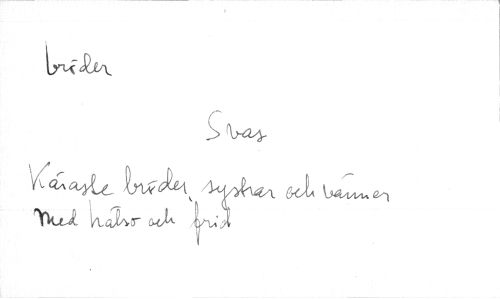 bröder
Svas
Käraste bröder, systrar och vänner
Med hälso och frid